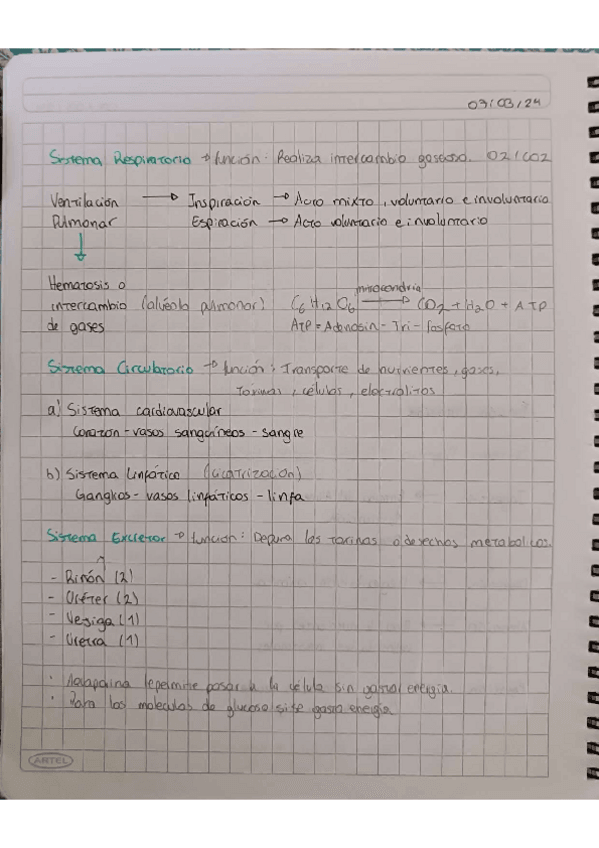 09/03/24
Sistema Respiratorio → función: Realiza intercambio gaseoso. O2/CO2
Ventilación → Inspiración → Acto mixto, voluntario e involuntario
Pulmonar Espiración → Acto voluntario e involuntario
↓
Hematosis o
intercambio (alvéolo pulmonar) C6H12O6 mitocondria → CO2 + H2O + ATP
de gases ATP = Adenosin-Tri-fosfato
Sistema Circulatorio → función: Transporte de nutrientes, gases,
toxinas, células, electrolitos
a) Sistema cardiovascular
Corazón - vasos sanguíneos - sangre
b) Sistema Linfático (cicatrización)
Ganglios - vasos linfáticos - linfa
Sistema Excretor → función: Depura las toxinas o desechos metabolitos.
- Riñón (2)
- Uréter (2)
- Vesiga (1)
- Uretra (1)
· le permite pasar a la célula sin gastar energía.
· Para las moléculas de glucosa si se gasta energía
ARTEL